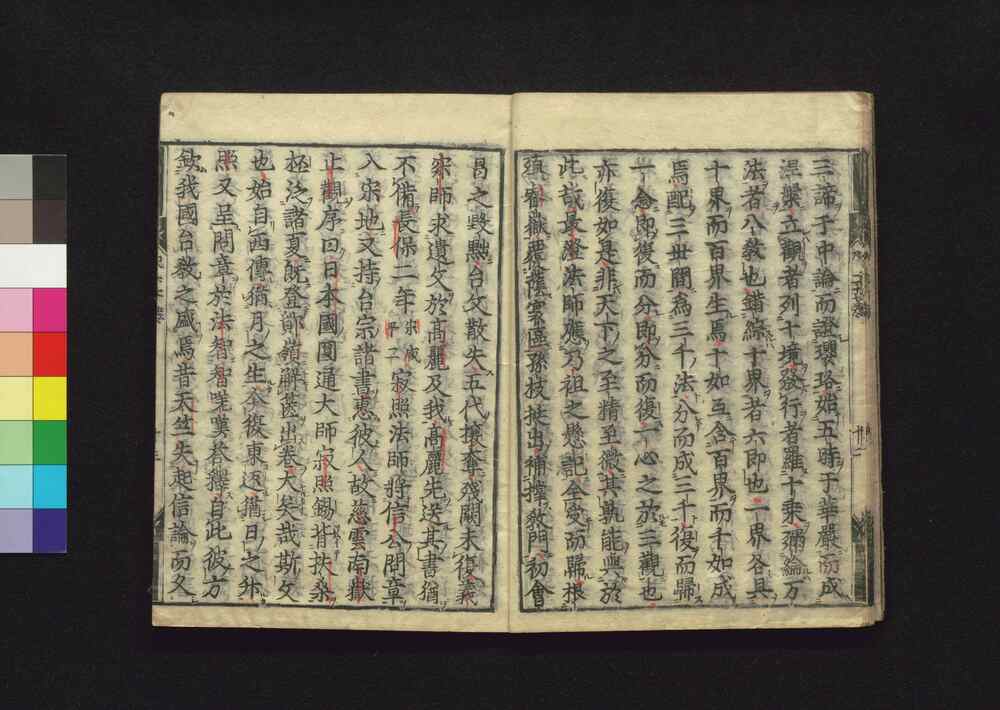 三諦于中論而證瓔珞始五時于華嚴而成
涅槃立觀者列十境發行者羅十乘弥綸万
法者八教也錯綜十界者六即也一界各具
十界而百界生焉十如互含百界而千如成
焉配三世間為三千法分而成三千復而歸
一念即復而分即分而復一心之於三觀也
亦復如是非天下之至精至微其孰能與於
此哉最澄法師應乃祖之懸記全受而歸根
嶽 蔭雲區孫枝挺出補 教門初會
昌之毀 台文散失五代攘奪殘闕未復義
寂師求遺文於高麗及我高麗先送其書猶
不備長保二年宋咸平二寂照法師將信公問章
入宋地又持台宗諸書惠彼人故慈雲南嶽
止觀序曰日本國圓通大師寂照錫背扶桑
杯泛諸夏既登鄮嶺解篋出卷大矣哉斯文
也始自西傳猶月之生今復東返猶日之升
照又呈問章於法智智嘆答釋自此彼方
欽我國台教之盛焉昔天竺失起信論而又